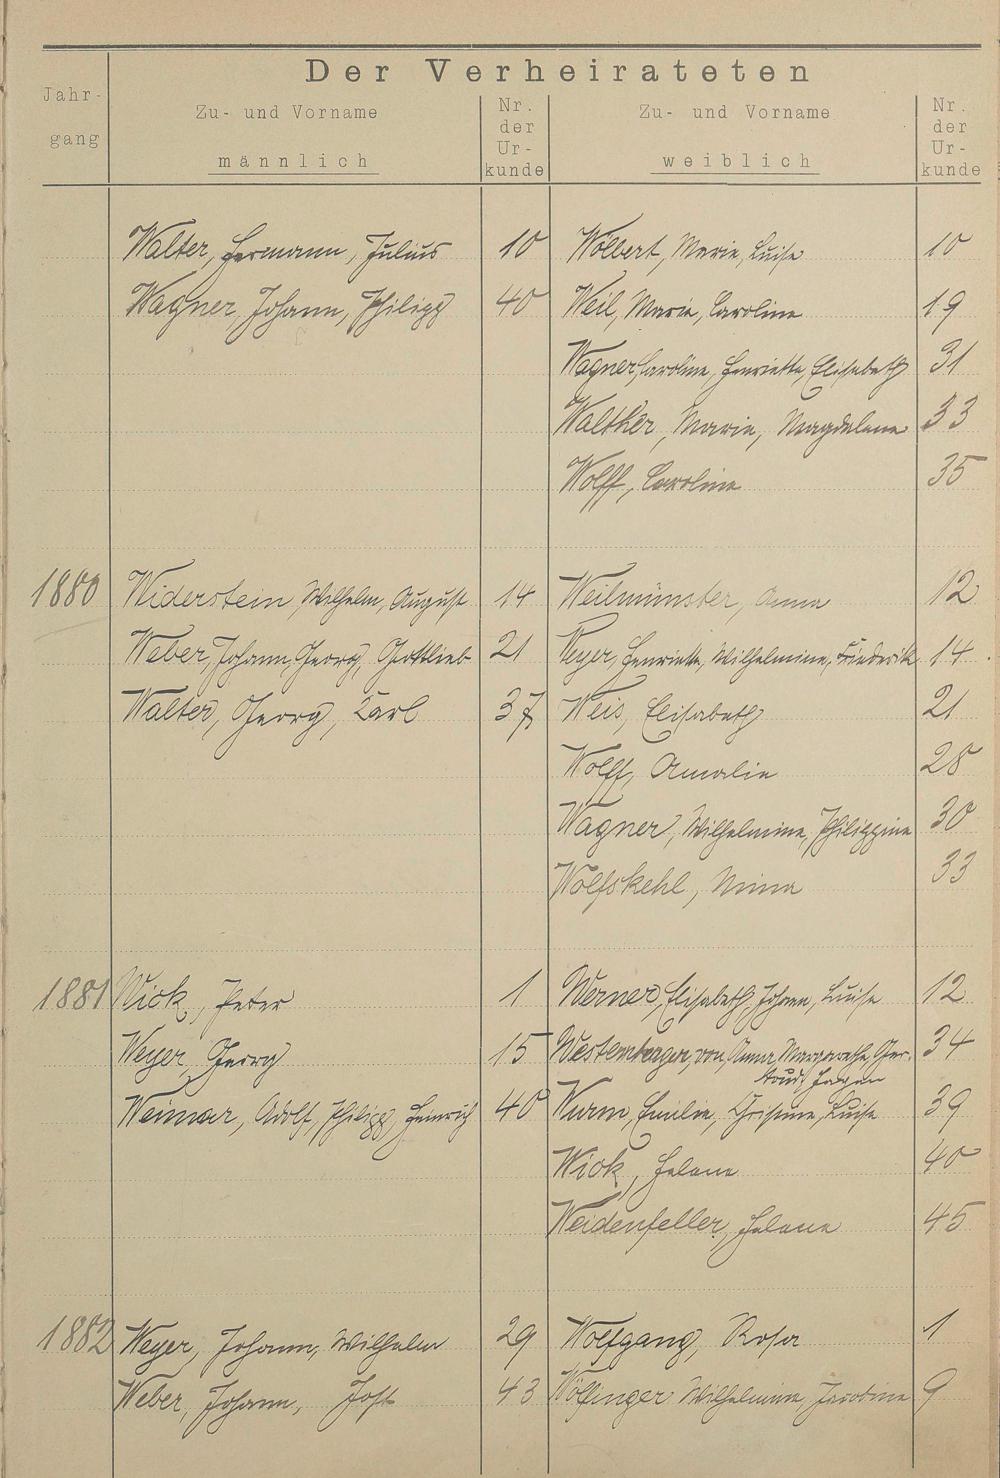 Der Verheirateten
Jahr-
gang
Zu- und Vorname
männlich
Nr.
der
Ur-
kunde
Zu- und Vorname
weiblich
Nr.
der
Ur-
kunde
Walter, Hermann, Julius 10 Wölbert, Marie, Luise 10
Wagner, Johann, Philipp 40 Weil, Marie, Caroline 19
Wagner, Caroline, Henriette, Elisabeth 31
Walther, Marie, Magdalene 33
Wolff, Caroline 35
1880 Widerstein, Wilhelm, August 14 Weilmünster, Anna 12
Weber, Johann, Georg, Gottlieb 21 Weyer, Henriette, Wilhelmine, Friederik 14
Walter, Georg, Karl 37 Weis, Elisabeth 21
Wolff, Amalie 28
Wagner, Wilhelmine, Philippine 30
Wolfskehl, Mina 33
1881 Wick, Peter 1 Werner, Elisabeth, Johann, Luise 12
Weyer, Georg 15 Westernberger, von, Anna, Margarethe, Ger- 34
trud
Weimar, Adolf, Philipp, Heinrich 40 Wurm, Emilie, Luise 39
Wick, Helene 40
Weidenfeller, Helene 45
1882 Weyer, Johann, Wilhelm 29 Wolfgang, Rosa 1
Weber, Johann, Jost 43 Wölfinger, Wilhelmine, Jacobine 9